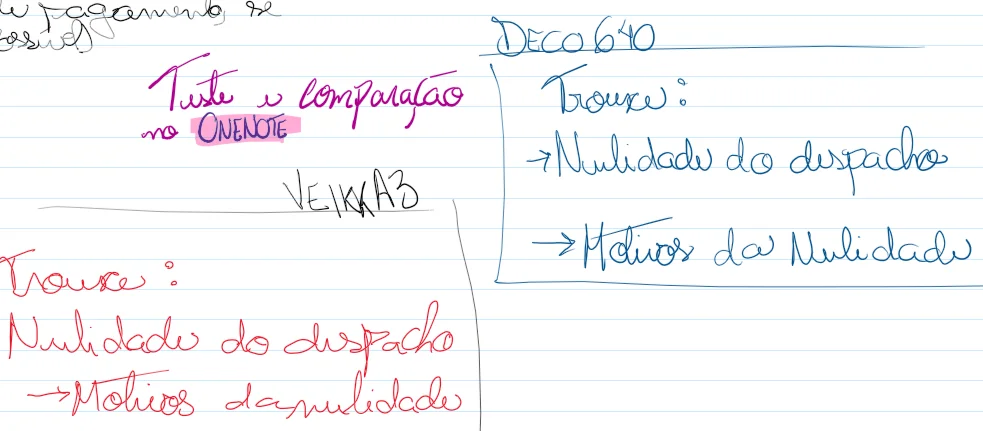 de pagamento, se
possível)
Teste e comparação
no ONENOTE
VEIKKA3
Trouxe:
Nulidade do despacho
→Motivos da nulidade
DECO 640
Trouxe:
→Nulidade do despacho
→Motivos da Nulidade